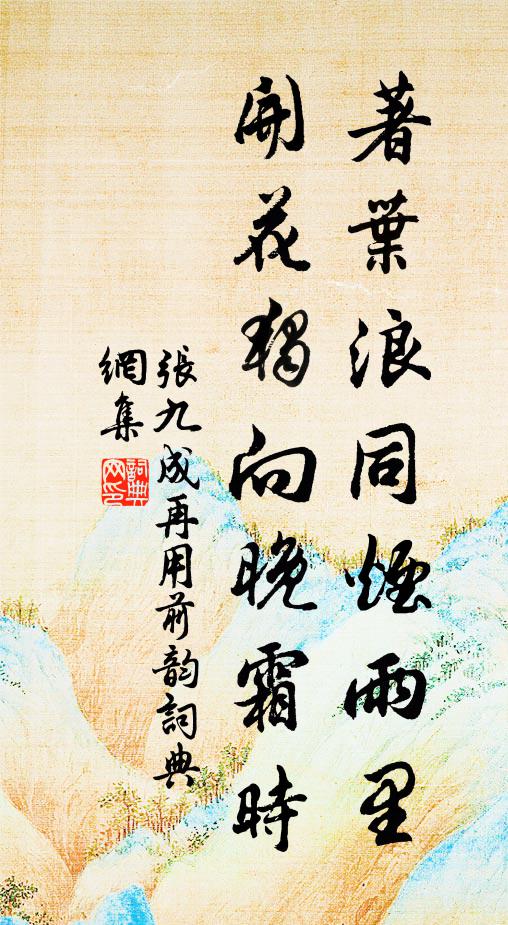 著葉浪同煙雨里
開花獨向晚霜時
張九成再用前韵詞典
網集
詞典網印